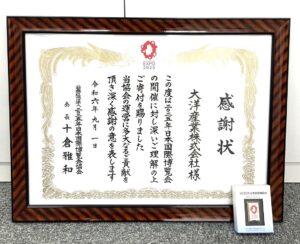 EXPO
2025
感謝状
大洋産業株式会社 様
この度は二〇二五年日本国際博覧会
の開催に対し深いご理解の上
ご寄付を賜りました
当協会の運営に多大なるご貢献を
頂き深く感謝の意を表します
令和六年九月一日
公益社団法人二〇二五年日本国際博覧会協会
会長 十倉雅和